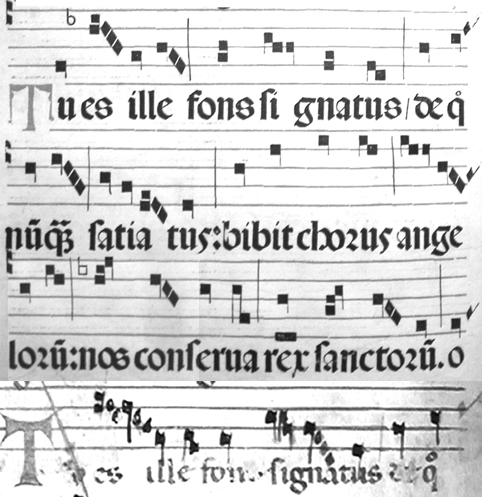 Tu es ille fons si gnatus / de qͦ
nūq̄ȝ satia tus: bibit chorus ange
lorū: nos conserua rex sanctorū. o
T es ille fons signatus qͦ